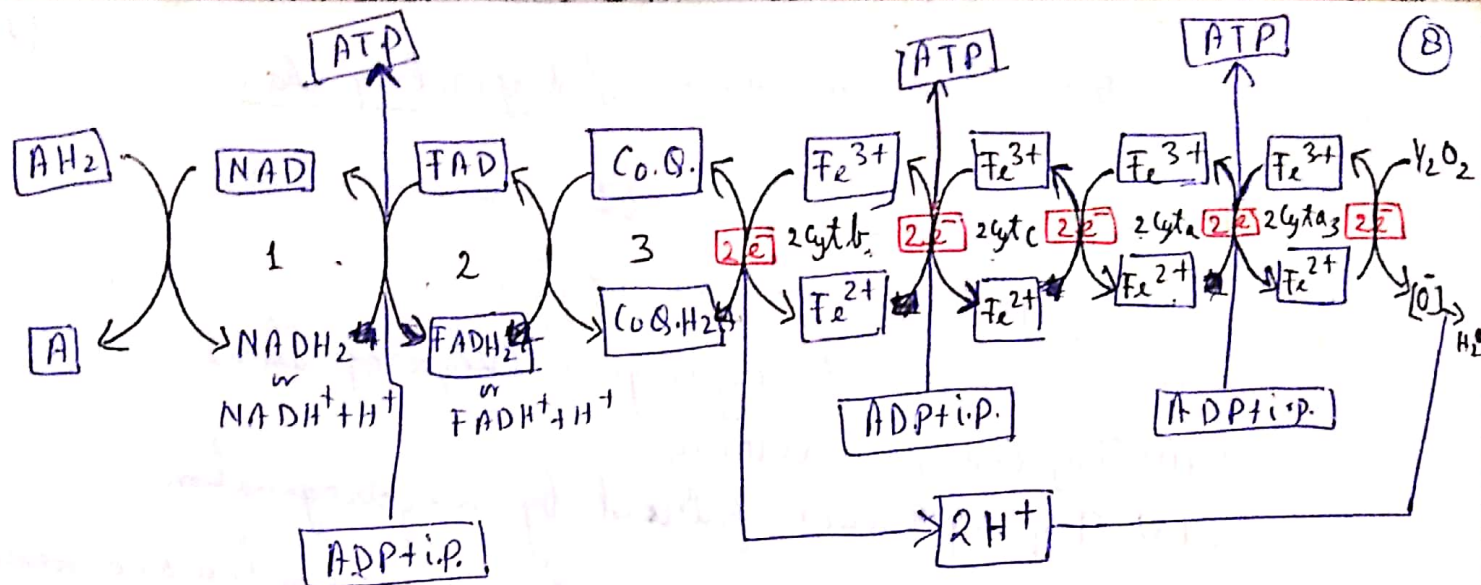 ATP ATP ATP 8
AH₂ NAD FAD Co.Q. Fe³⁺ Fe³⁺ Fe³⁺ Fe³⁺ ½O₂
1 2 3 2e⁻ 2cyt.b. 2e⁻ 2cyt c 2e⁻ 2cyt a 2e⁻ 2cyt a₃ 2e⁻
A NADH₂ FADH₂ CoQ.H₂ Fe²⁺ Fe²⁺ Fe²⁺ Fe²⁺ [O⁻] H₂O
or or
NADH⁺+H⁺ FADH⁺+H⁺ ADP+i.p. ADP+i.p.
2H⁺
ADP+i.p.